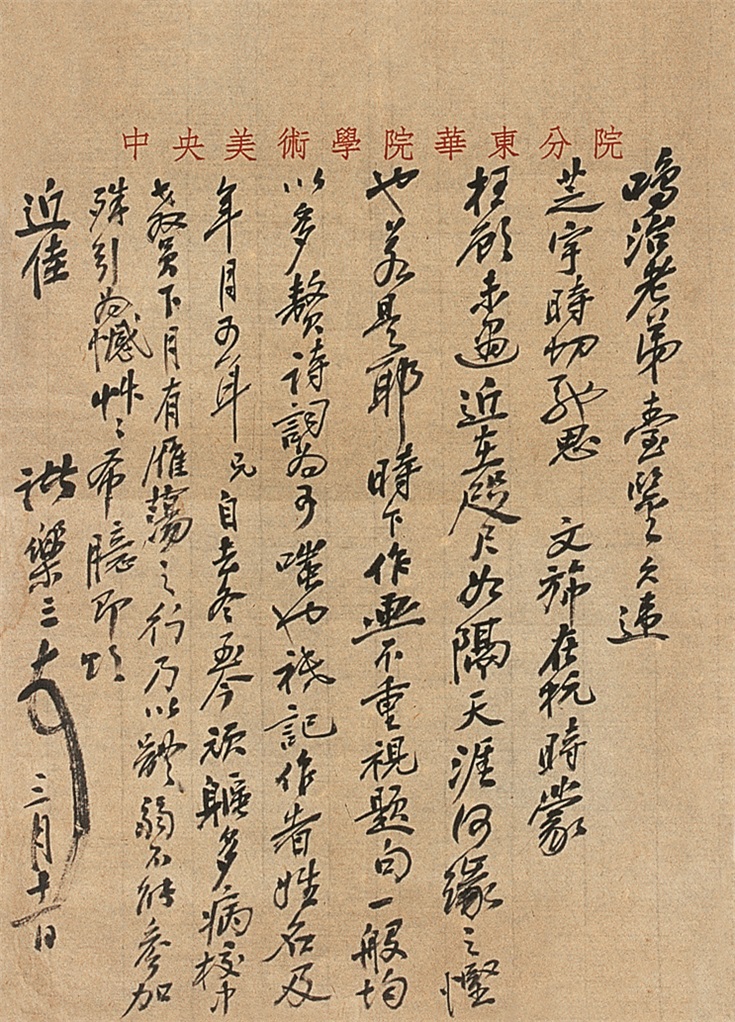 中央美術學院華東分院
鳴治老弟臺鑒久違
芝宇時切馳思 文旆在杭時蒙
枉顧未遇近在咫尺如隔天涯何緣之慳
也若是耶時下作畫不重視題句一般均
以多贅詩詞為可嗤也祇記作者姓名及
年月可耳兄自去冬至今頑軀多病校中
教員下月有雁蕩之行乃以體弱不能參加
殊引為憾艸艸希隐即頌
近佳
諧樂三 三月十一日